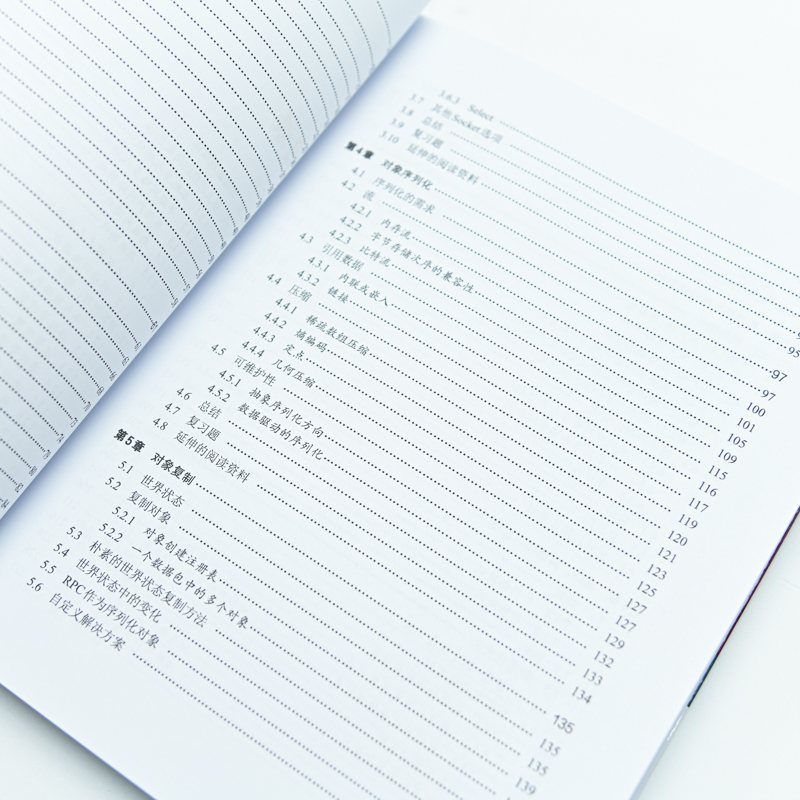 3.6.3 Select
3.7 其他Socket选项
3.8 总结
3.9 复习题
3.10 延伸的阅读资料 95
第4章 对象序列化 97
4.1 序列化的需求 97
4.2 流 100
4.2.1 内存流 101
4.2.2 字节存储次序的兼容性 105
4.2.3 比特流 109
4.3 引用数据 115
4.3.1 内联或嵌入 116
4.3.2 链接 117
4.4 压缩 119
4.4.1 稀疏数组压缩 120
4.4.2 熵编码 121
4.4.3 定点 123
4.4.4 几何压缩 125
4.5 可维护性 127
4.5.1 抽象序列化方向 127
4.5.2 数据驱动的序列化 129
4.6 总结 132
4.7 复习题 133
4.8 延伸的阅读资料 134
第5章 对象复制 135
5.1 世界状态 135
5.2 复制对象 135
5.2.1 对象创建注册表 139
5.2.2 一个数据包中的多个对象
5.3 朴素的世界状态复制方法
5.4 世界状态中的变化
5.5 RPC作为序列化对象
5.6 自定义解决方案